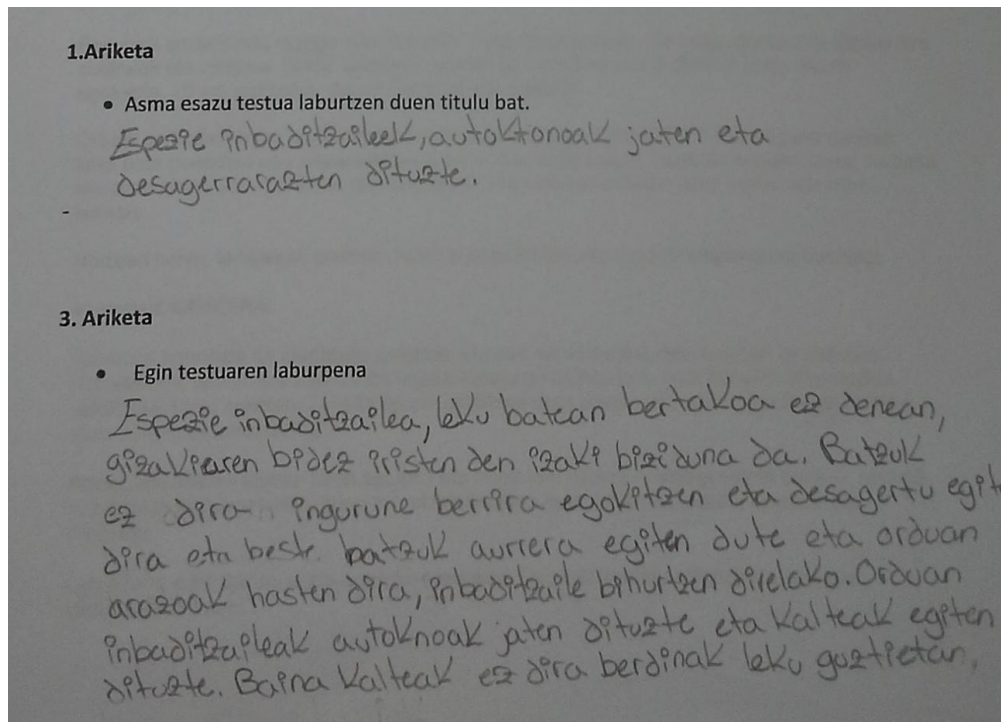 1.Ariketa
• Asma esazu testua laburtzen duen titulu bat.
Espezie inbaditzaileek, autoktonoak jaten eta
desagerrarazten dituzte.
-
3. Ariketa
• Egin testuaren laburpena
Espezie inbaditzailea, leku batean bertakoa ez denean,
gizakiaren bidez iristen den izaki biziduna da. Batzuk
ez dira ingurune berrira egokitzen eta desagertu egit
dira eta beste batzuk aurrera egiten dute eta orduan
arazoak hasten dira, inbaditzaile bihurtzen direlako. Orduan
inbaditzaileak autoknoak jaten dituzte eta kalteak egiten
dituzte. Baina kalteak ez dira berdinak leku guztietan,